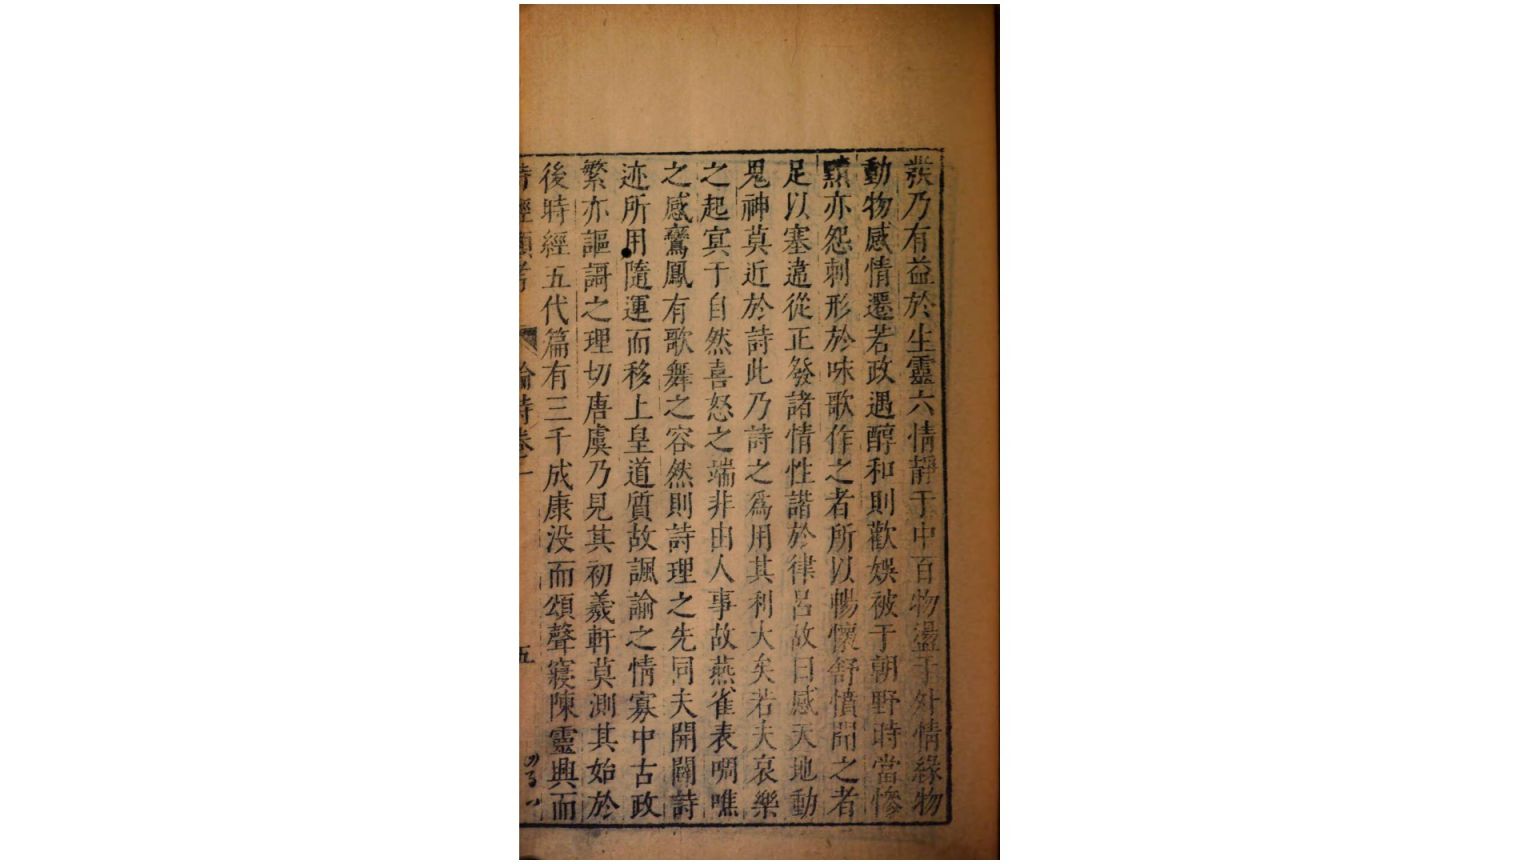 發乃有益於生靈六情靜于中百物盪于外情緣物
動物感情遷若政遇醇和則歡娛被于朝野時當慘
黷亦怨刺形於咏歌作之者所以暢懷舒憤聞之者
足以塞違從正發諸情性諧於律呂故曰感天地動
鬼神莫近於詩此乃詩之爲用其利大矣若夫哀樂
之起冥于自然喜怒之端非由人事故燕雀表啁噍
之感鸞鳳有歌舞之容然則詩理之先同夫開闢詩
迹所用隨運而移上皇道質故諷諭之情寡中古政
繁亦謳謌之理切唐虞乃見其初羲軒莫測其始於
後時經五代篇有三千成康没而頌聲寢陳靈興而
詩經類考 論詩卷一 五